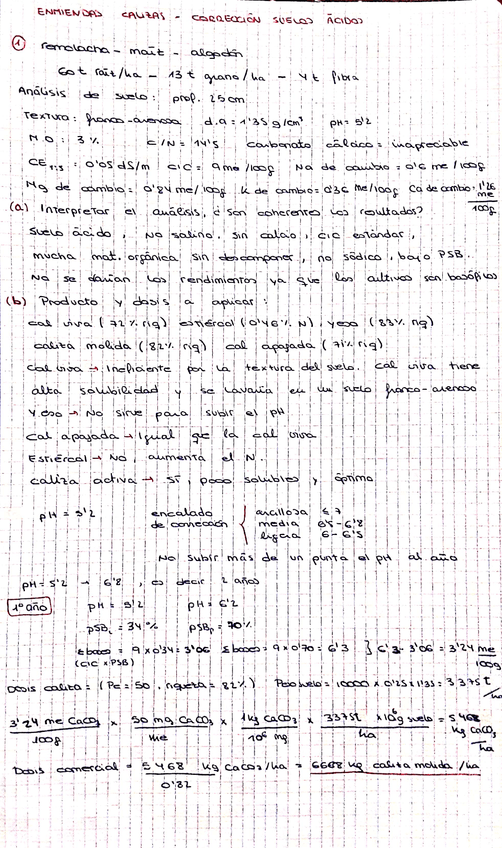 ENMIENDAS CALIZAS - CORRECCIÓN SUELOS ÁCIDOS
① remolacha - maíz - algodón
60 t raíz/ha - 13 t grano/ha - 4 t fibra
Análisis de suelo: prof. 25cm
Textura: franco-arenosa d.a = 1'35 g/cm³ pH = 5'2
M.O: 3% C/N = 14'5 Carbonato cálcico = inapreciable
CE 1:5 = 0'05 dS/m CIC = 9 me/100g Na de cambio = 0'6 me/100g
Mg de cambio = 0'84 me/100g K de cambio = 0'36 me/100g Ca de cambio = 1'26 me/100g
(a) Interpretar el análisis, ¿son coherentes los resultados?
Suelo ácido, No salino, sin calcio, CIC estándar,
mucha mat. orgánica sin descomponer, no sódico, bajo PSB.
No se darían los rendimientos ya que los cultivos son basófilos
(b) Producto y dosis a aplicar:
cal viva (72% riq) estiércol (0'46% N), yeso (83% riq)
caliza molida (82% riq) cal apagada (71% riq)
Cal viva → Ineficiente por la textura del suelo. Cal viva tiene
alta solubilidad y se lavaría en un suelo franco-arenoso
Yeso → No sirve para subir el pH
Cal apagada → Igual que la cal viva
Estiércol → No, aumenta el N.
Caliza activa → Sí, poco solubles y óptimo
pH = 5'2 encalado de corrección { arcillosa 6'7
media 6'5 - 6'8
ligera 6 - 6'5
No subir más de un punto el pH al año
pH = 5'2 → 6'8, es decir 2 años
1º año pH = 5'2 pH = 6'2
PSBi = 34% PSBf = 70%
Σbases = 9 x 0'34 = 3'06 Σbases = 9 x 0'70 = 6'3 } 6'3 - 3'06 = 3'24 me/100g
(CIC x PSB)
Dosis caliza: (Pe = 50, riqueza = 82%) Peso suelo = 10000 x 0'25 x 1'35 = 3375 t/ha
3'24 me CaCO3/100g x 50 mg CaCO3/me x 1 kg CaCO3/10⁶ mg x 3375t x 10⁶ g suelo/ha = 5468 kg CaCO3/ha
Dosis comercial = 5468 kg CaCO3/ha / 0'82 = 6668 kg caliza molida/ha